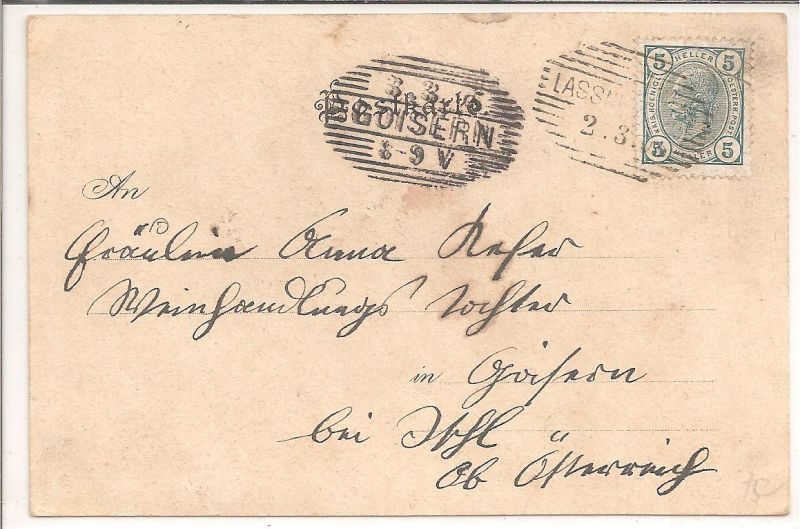 5 HELLER 5
KAIS. KOENIGL. OESTERR. POST
5 HELLER 5
LASSN
2.3.
3.3.
Postkarte.
GOISERN
8-9 V
An
Fräulein Anna Kefer
Weinhandlungs Tochter
in Goisern
bei Ischl
Ob Österreich